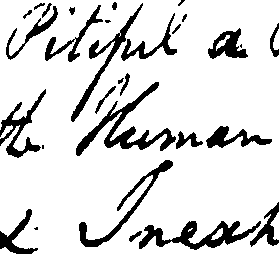 Pitiful a
the Human
& Inexh